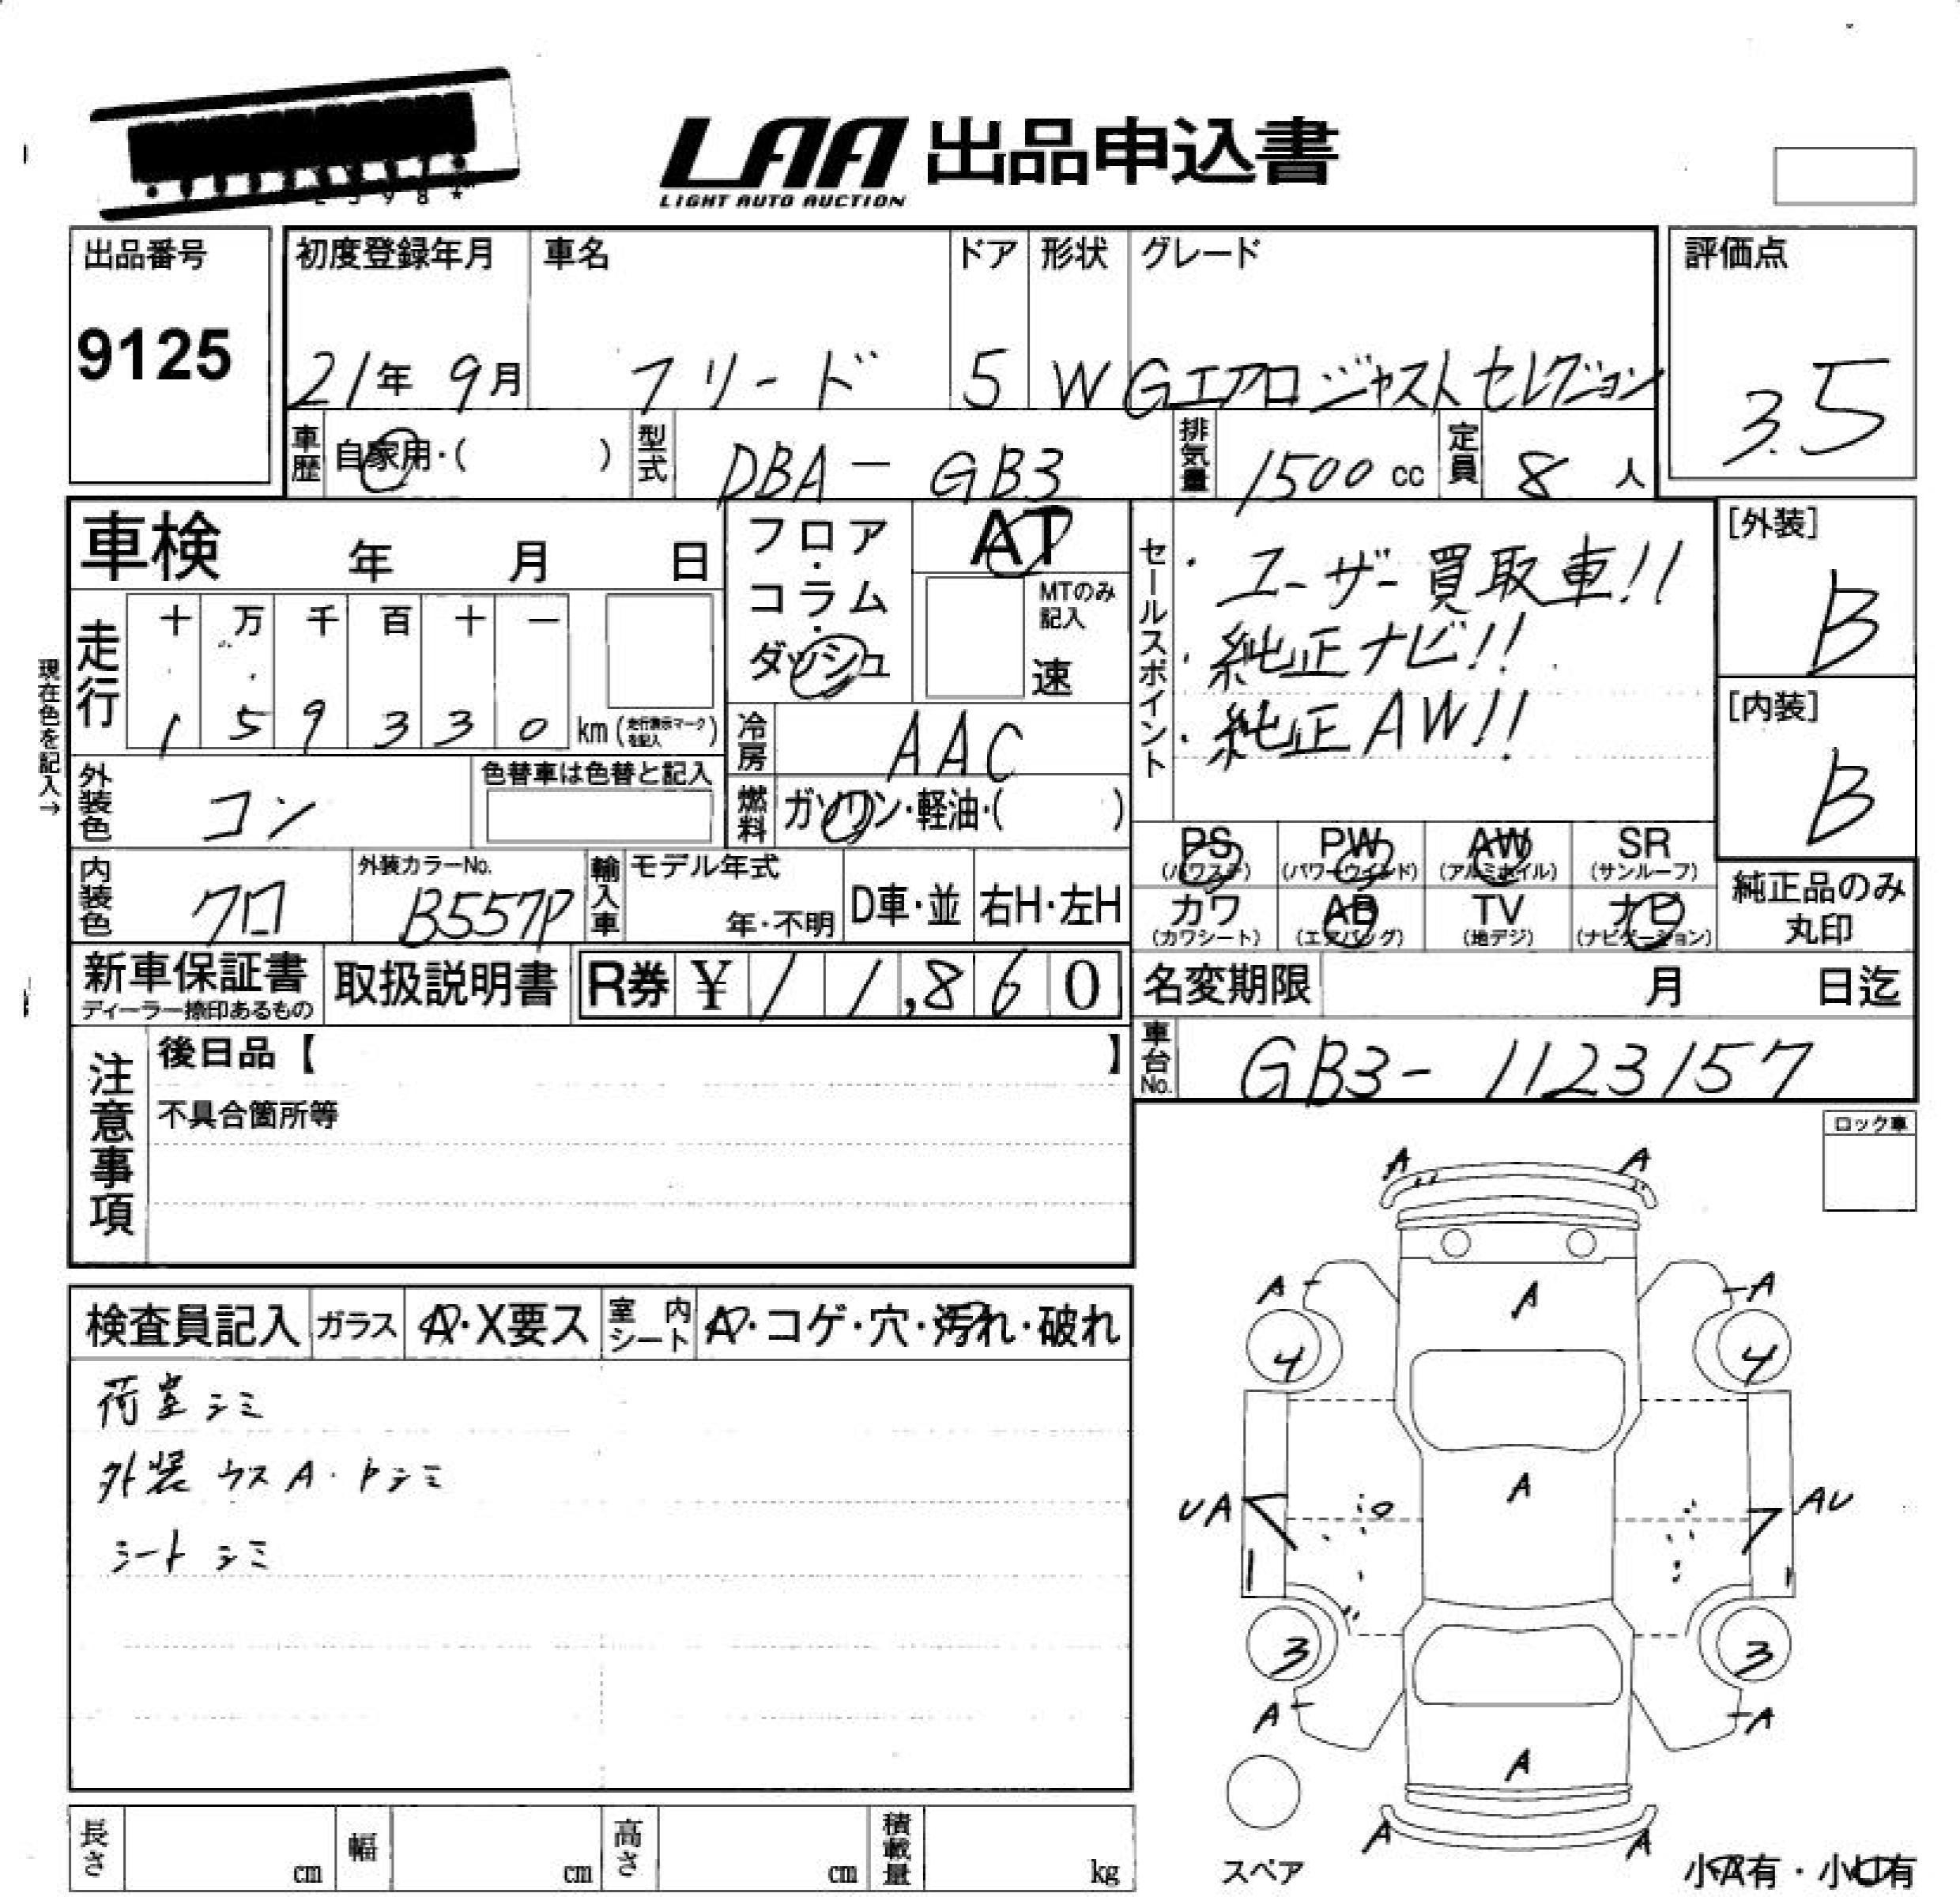 LAA 出品申込書
LIGHT AUTO AUCTION
出品番号
9125
初度登録年月
21年 9月
車名
フリード
ドア
5
形状
W
グレード
Gエアロ ジャストセレクション
評価点
3.5
車歴
自家用・( )
型式
DBA-GB3
排気量
1500 cc
定員
8 人
車検 年 月 日
フロア・コラム・ダッシュ
AT
MTのみ記入
速
セールスポイント
・ユーザー買取車!!
・純正ナビ!!
・純正AW!!
[外装]
B
[内装]
B
現在色を記入→
走行
十 万 千 百 十 一
1 5 9 3 3 0 km (走行表示マークを記入)
冷房
AAC
外装色
コン
色替車は色替と記入
燃料
ガソリン・軽油・( )
PS (パワステ) PW (パワーウインド) AW (アルミホイル) SR (サンルーフ)
カワ (カワシート) AB (エアバッグ) TV (地デジ) ナビ (ナビゲーション)
純正品のみ丸印
内装色
クロ
外装カラーNo.
B557P
輸入車
モデル年式
年・不明
D車・並
右H・左H
新車保証書
ディーラー捺印あるもの
取扱説明書
R券 ¥11,860
名変期限 月 日迄
車台No.
GB3-1123157
注意事項
後日品【 】
不具合箇所等
ロック車
検査員記入
ガラス
A・X要ス
室内シート
A・コゲ・穴・汚れ・破れ
荷室シミ
外装 ウスA・トシミ
シートシミ
A A
A A A
4 4
A
UA AU
3 3
A A
A
A A
スペア
小A有・小U有
長さ cm
幅 cm
高さ cm
積載量 kg